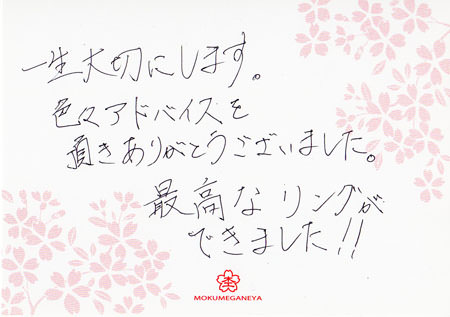 一生大切にします。
色々アドバイスを
頂きありがとうございました。
最高なリングが
できました!!
MOKUMEGANEYA